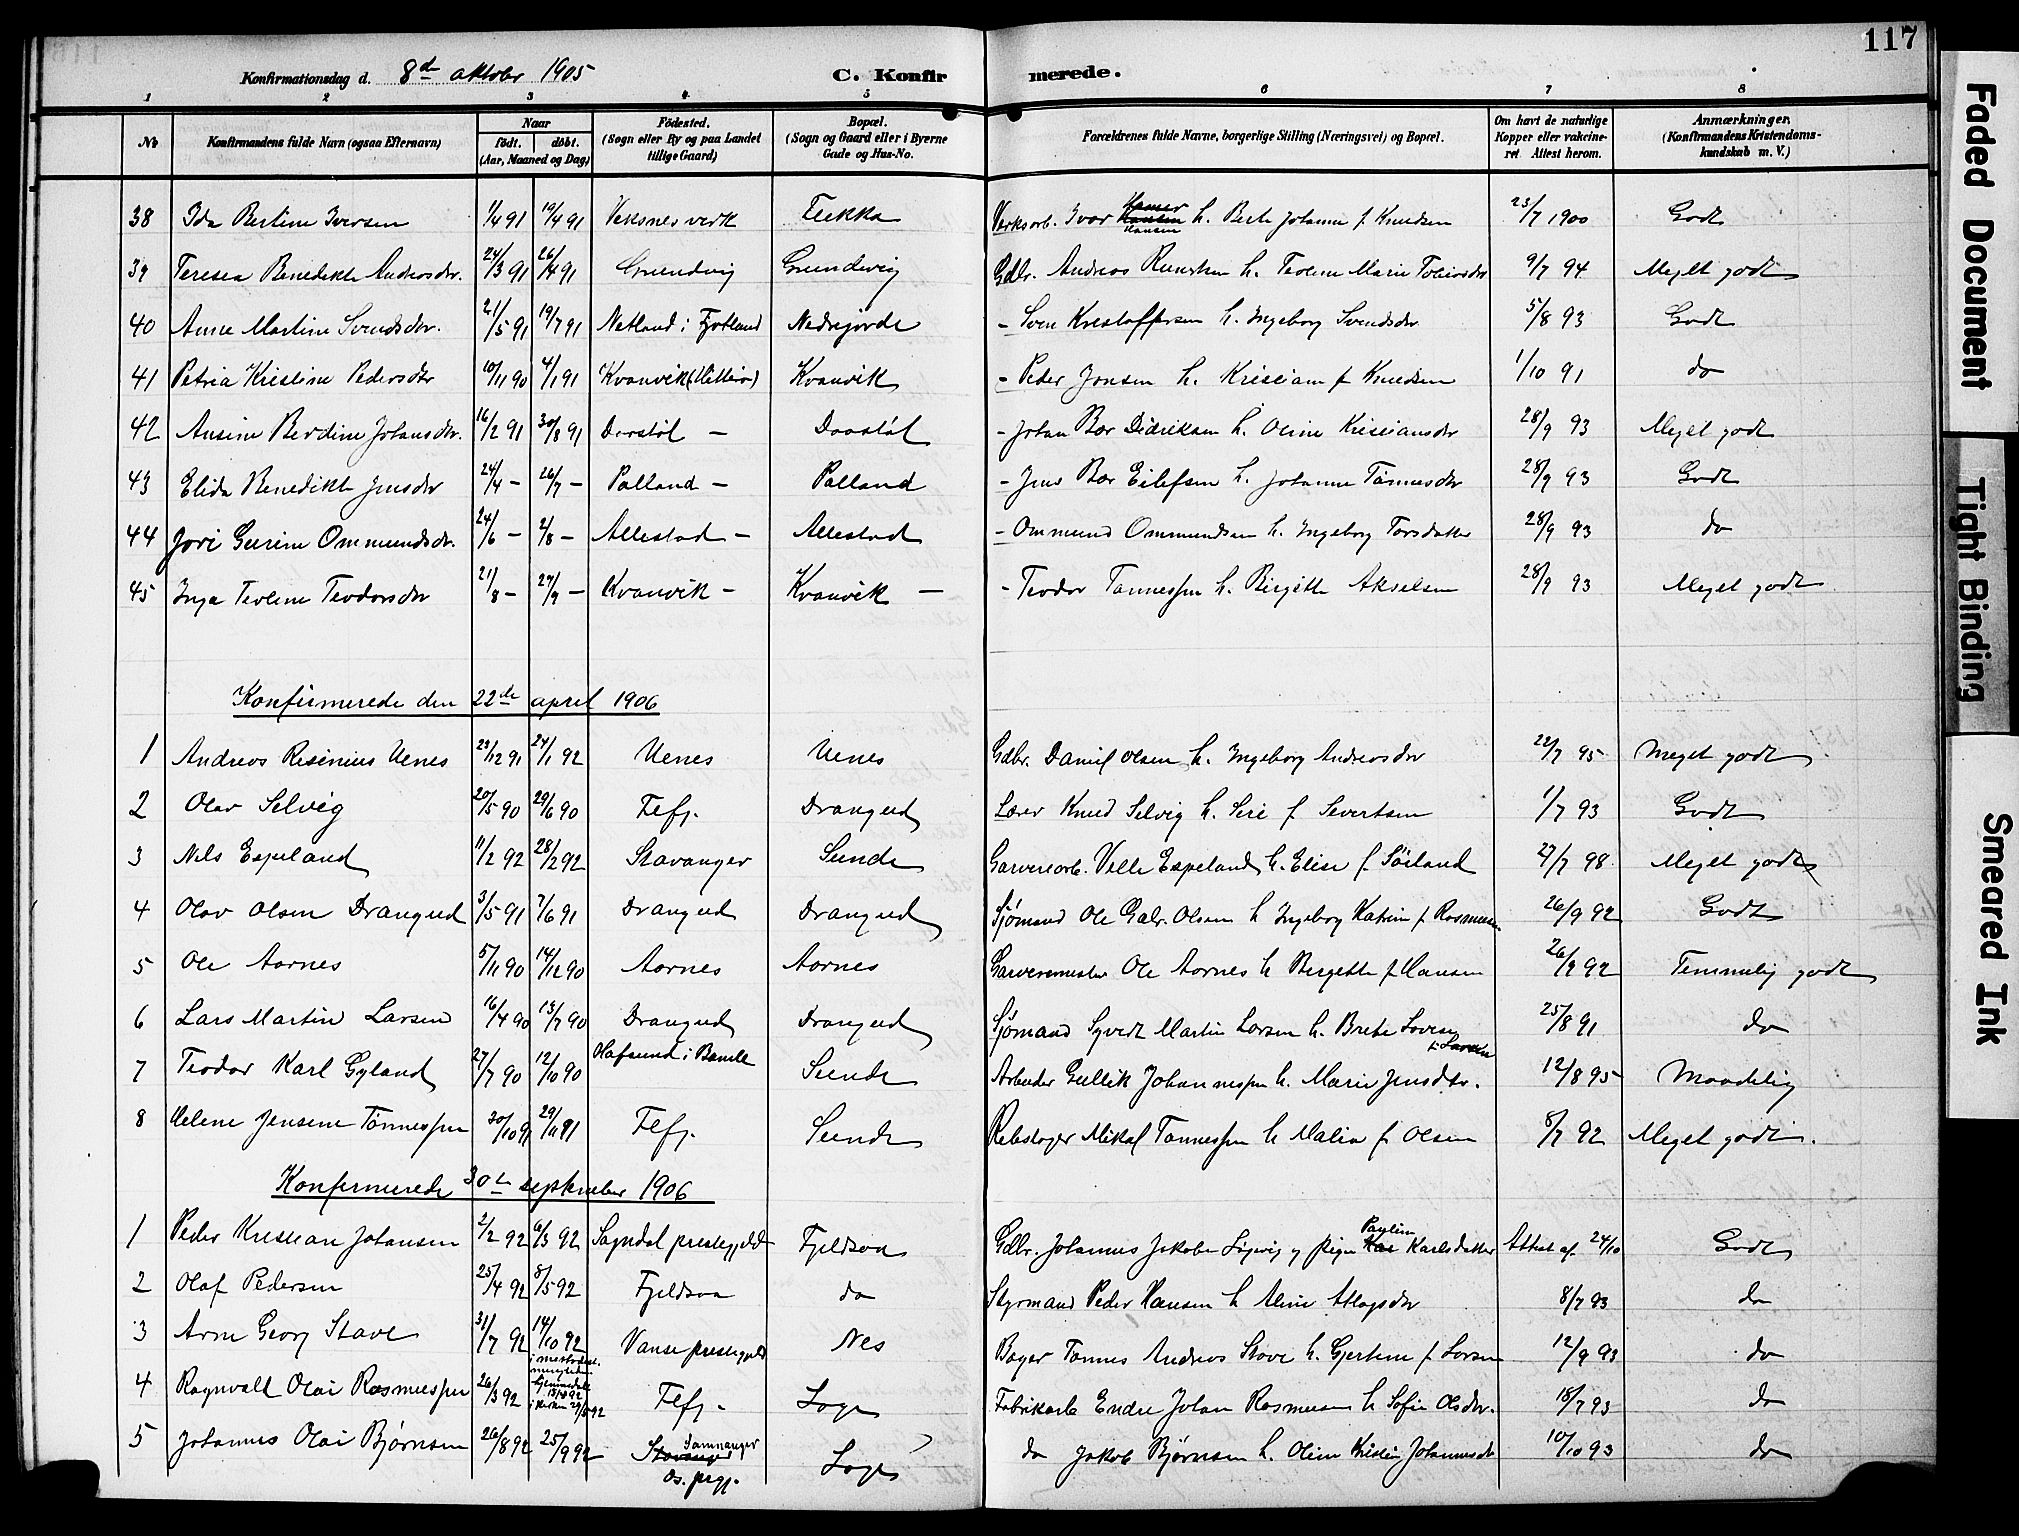 117
Konfirmationsdag d. 8de oktober 1905 C. Konfirmerede.
1 2 3 4 5 6 7 8
No Konfirmandens fulde Navn (ogsaa Efternavn) Naar født. døbt. (Aar, Maaned og Dag) Fødested. (Sogn eller By og paa Landet tillige Gaard) Bopæl. (Sogn og Gaard eller i Byerne Gade og Hus-No. Forældrenes fulde Navne, borgerlige Stilling (Næringsvei) og Bopæl. Om havt de naturlige Kopper eller vakcineret. Attest herom. Anmærkninger. (Konfirmandens Kristendomskundskab m. V.)
38 Ida Bertine Iversen 1/4 91 19/4 91 verk Fukka Verksarb. Ivar Hansen h. Berte Johanne f. Knudsen 23/7 1900 Godt
39 Teresea Benedikte Andreasdtr. 24/3 91 26/4 91 Grundvig Grundevig Gdbr. Andreas h. Teoline Marie Tobiasdtr 9/7 94 Meget godt
40 Anne Martine Svendsdtr. 21/5 91 19/7 91 Netland i Fjotland Nedrejorde - Sven Kristoffersen h. Ingeborg Svendsdtr 5/8 93 Godt
41 Petria Kristine Pedersdtr 10/11 90 4/1 91 Kvanvik (Hitterø) Kvanvik - Peder Jonsen h. Kristiane f. Knudsen 1/10 91 do
42 Ansine Berdine Johansdtr. 16/2 91 30/8 91 Dorstøl - Daastøl - Johan Bær Didriksen h. Oline Kristiansdtr 28/9 93 Meget godt
43 Elida Benedikte Jensdtr 24/4 - 26/7 - Polland - Polland - Jens Bær Eilefsen h. Johanne Tønnesdtr 28/9 93 Godt
44 Jori Gurine Ommundsdtr. 24/6 - 2/8 - Allestad - Allestad - Ommund Ommundsen h. Ingeborg Torsdatter 28/9 93 do
45 Inga Teoline Teodorsdtr 21/8 - 27/9 - Kvanvik - Kvanvik - - Teodor Tønnessen h. Birgitte Akselsen 28/9 93 Meget godt
Konfirmerede den 22de april 1906
1 Andreas Resinius Uenes 23/12 91 24/1 92 Uenes Uenes Gdbr. Daniel Olsen h. Ingeborg Andreasdtr 22/7 95 Meget godt
2 Olav Selvig 20/5 90 29/6 90 Flefj. Drangeid Lærer Knud Selvig h. Siri f. Sivertsen 1/7 93 Godt
3 Nils Espeland 11/2 92 28/2 92 Stavanger Sunde Garveriarb. Ville Espeland h. Elise f. Søiland 27/7 98 Meget godt
4 Olav Olsen Drangeid 3/5 91 7/6 91 Drangeid Drangeid Sjømand Ole Gabr. Olsen h Ingeborg Katrine f. Rasmussen 26/9 92 Godt
5 Ole Aarnes 5/11 90 14/12 90 Aarnes Aarnes Garvermester Ole Aarnes h Bergitte f. Hansen 26/9 92 Temmelig godt
6 Lars Martin Larsen 16/4 90 13/7 90 Drangeid Drangeid Sjømand Syvert Martin Larsen h. Brete Lovise f. Larsen 25/8 91 do
7 Teodor Karl Gyland 27/7 90 12/10 90 Olafsund i Bamle Sunde Arbeider Gullik Johannessen h. Marie Jensdtr. 12/8 95 Maadelig
8 Helene Jensine Tønnessen 30/10 91 29/11 91 Flefj. Sunde Rebslager Mikal Tønnessen h Malia f. Olsen 8/7 92 Meget godt.
Konfirmerede 30te september 1906
1 Peder Kristian Johansen 2/2 92 6/3 92 Sogndal prestegjeld Fjeldsaa Gdbr. Johannes Jakobsen og pige Pauline Karlsdatter Attest af 24/10 Godt
2 Olaf Pedersen 25/4 92 8/5 92 Fjeldsaa do Styrmand Peder Hansen h Aline Atlagsdtr 8/7 93 do
3 Arne Georg Stave 31/7 92 14/10 92 Vanse prestegjeld Nes Bager Tønnes Andreas Stave h. Gjertine f. Larsen 12/9 93 do
4 Ragnvald Olai Rasmussen 26/3 92 i metodistmenigheden 13/5 92 i kirken 29/5 92 Flefj. Loge Fabrikarb Endre Johan Rasmussen h Sofie Olsdtr. 18/7 93 do
5 Johannes Olai Bjørnsen 26/8 92 25/9 92 Stavanger Samnanger Os. prgj. Loge do Jakob Bjørnsen h. Oline Kristine Johannesdtr 10/10 93 do
Faded Document
Tight Binding
Smeared Ink